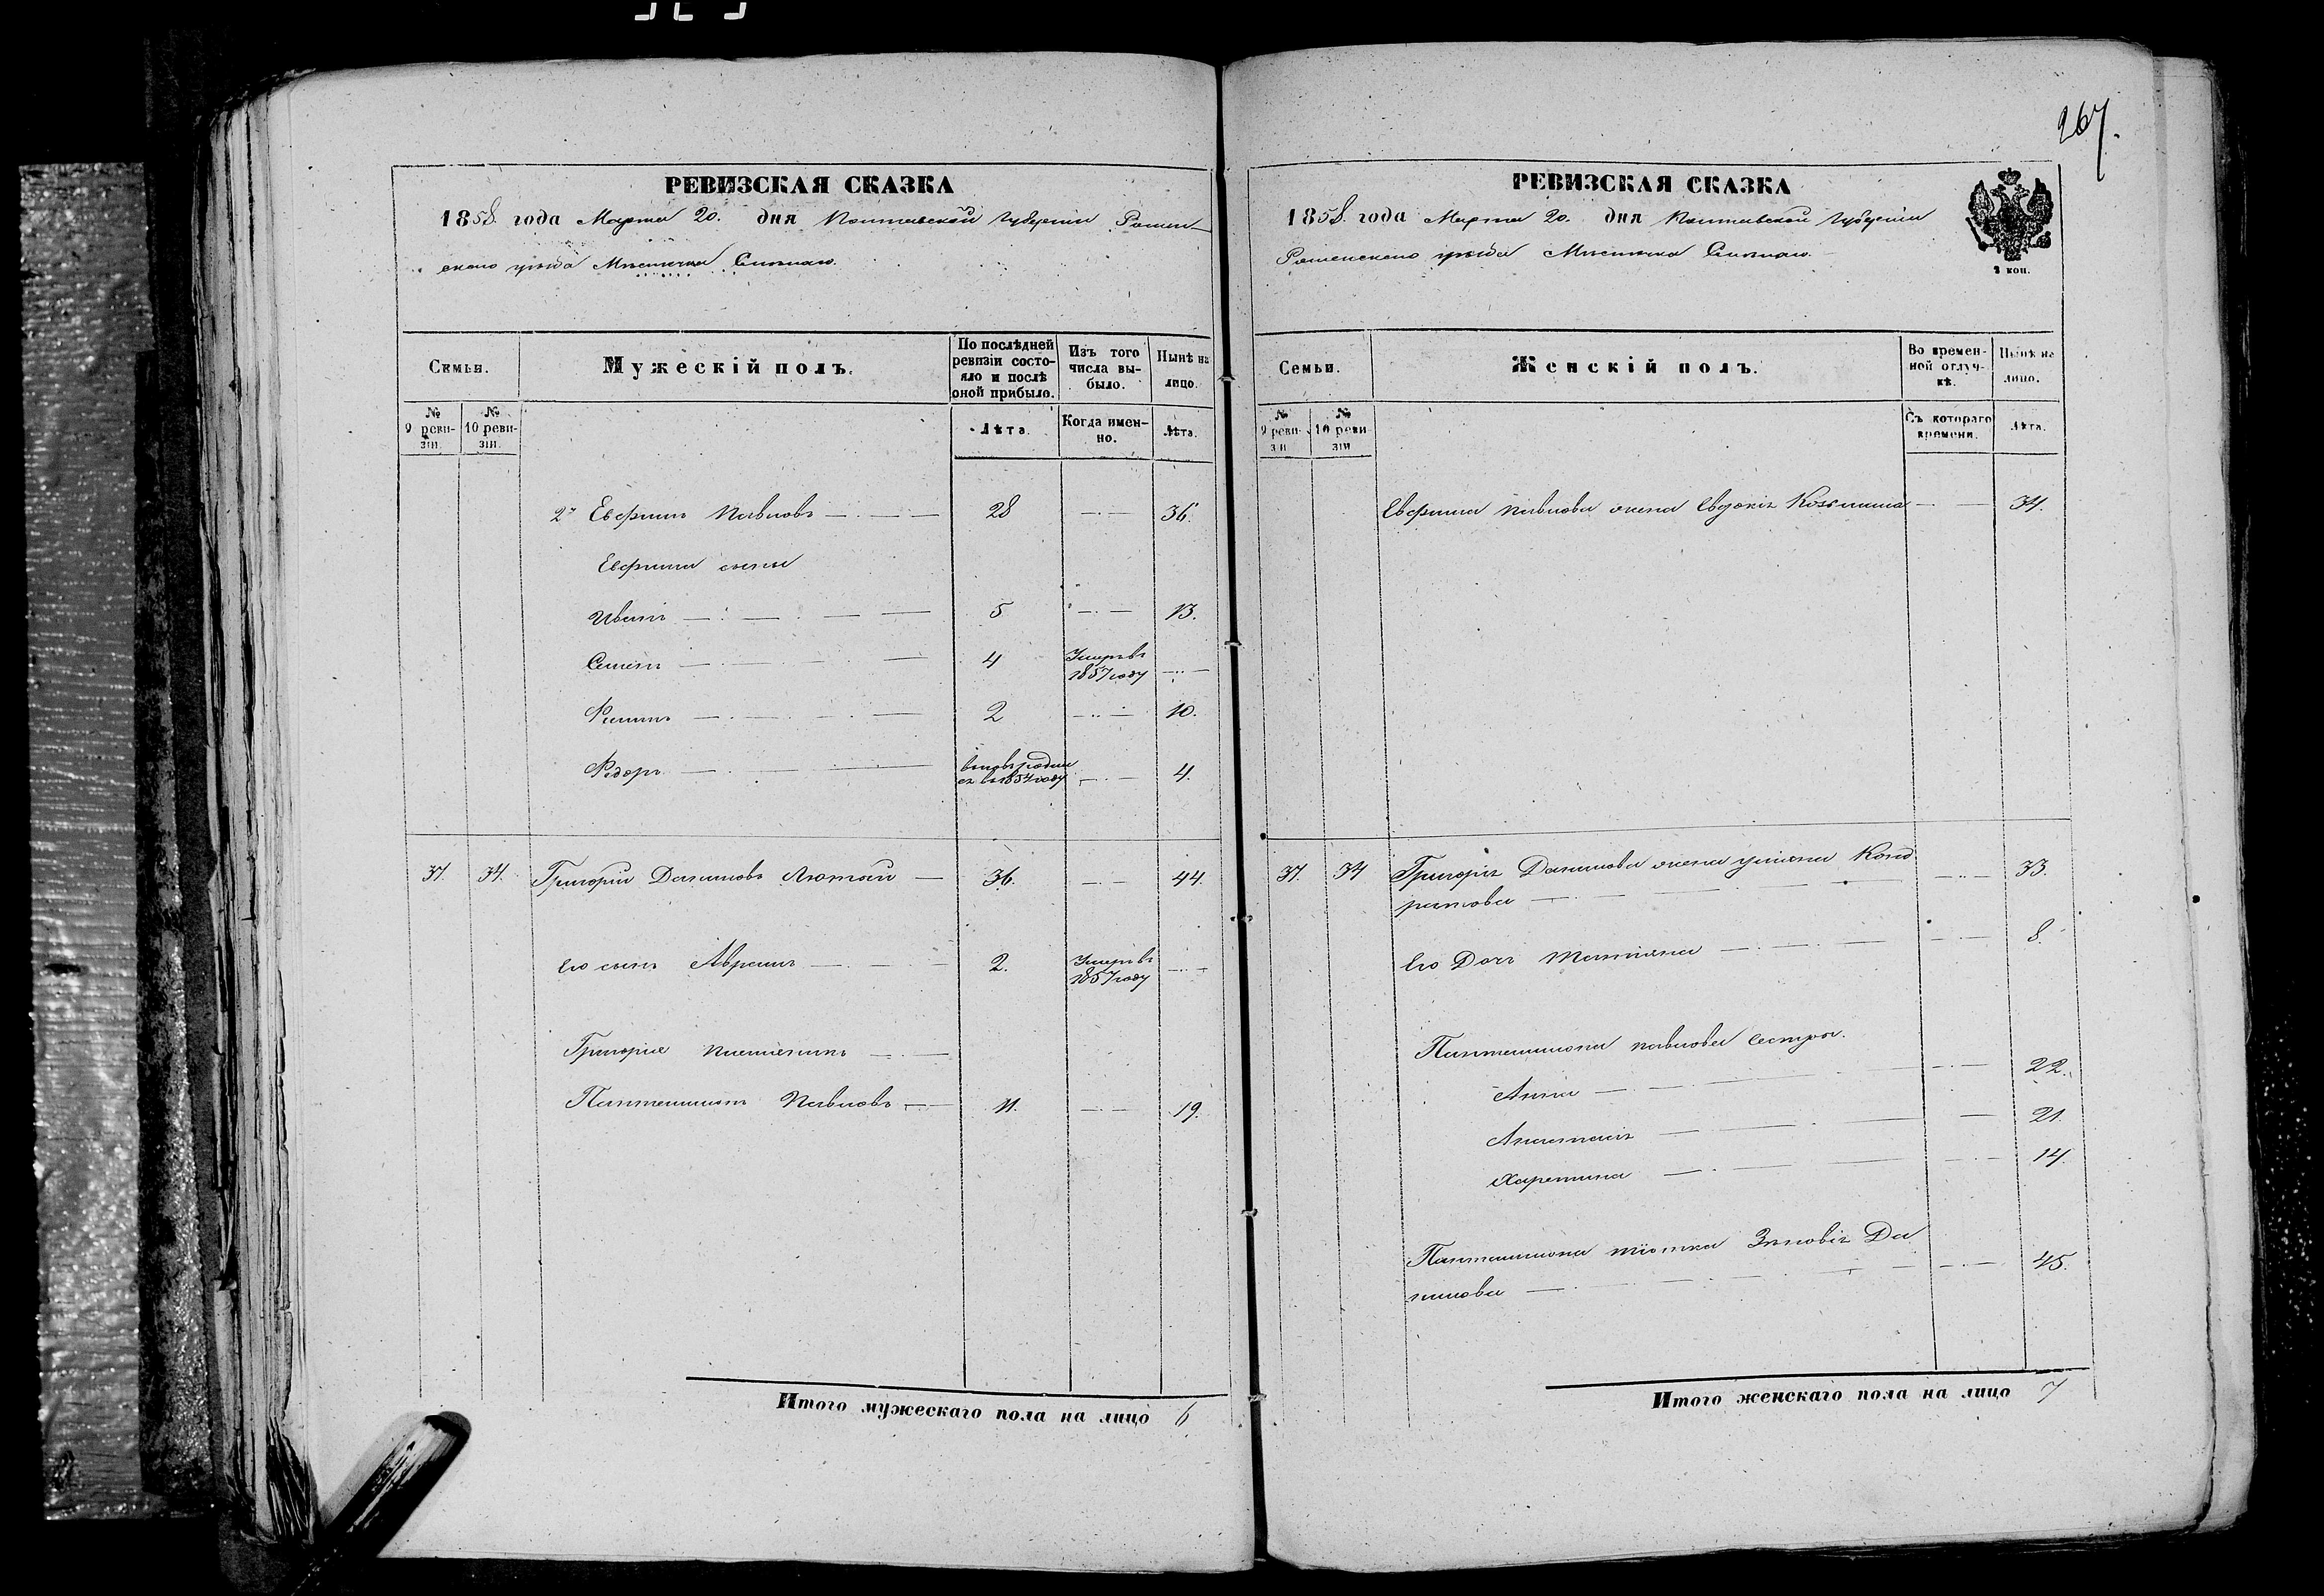 267.
РЕВИЗСКАЯ СКАЗКА
1858. года Марта 20. дня Полтавской губерніи Ромен-
скаго уѣзда Мѣстечка Смѣлаго.
Семьи.
Мужескій полъ.
По послѣдней
ревизіи состо-
яло и послѣ
оной прибыло.
Изъ того
числа вы-
было.
Нынѣ на
лицо.
№
9 реви-
зіи.
№
10 реви-
зіи.
Лѣта.
Когда имен-
но.
Лѣта.
2й Евфимъ Павловъ 28 36.
Евфима сыны
Иванъ 5 13.
Семенъ 4 Умеръ въ
1857 году
Филипъ 2 10.
Федоръ вновь родил
ся въ 1854 году 4.
37. 34. Григорій Даниловъ Лютый 36. 44.
Его сынъ Аврамъ 2. Умеръ въ
1857 году
Григорія племянникъ
Пантелимонъ Павловъ 11. 19.
Итого мужескаго пола на лицо 6
РЕВИЗСКАЯ СКАЗКА
1858. года Марта 20. дня Полтавской губерніи
Роменскаго уѣзда Мѣстечка Смѣлаго.
2 коп.
Семьи.
Женскій полъ.
Во времен-
ной отлуч-
кѣ.
Нынѣ на
лицо.
№
9 реви-
зіи
№
10 реви-
зіи
Съ котораго
времени.
Лѣта.
Евфима Павлова жена Евдокія Козьмина 34.
37. 34 Григорія Данилова жена Уліяна Конд
ратова 33.
Его Дочь Татіяна 8.
Пантелимона Павлова сестры.
Анна 22.
Анастасія 21.
Харитина 14.
Пантелимона тіотка Зѣновія Да
нилова 45.
Итого женскаго пола на лицо 7